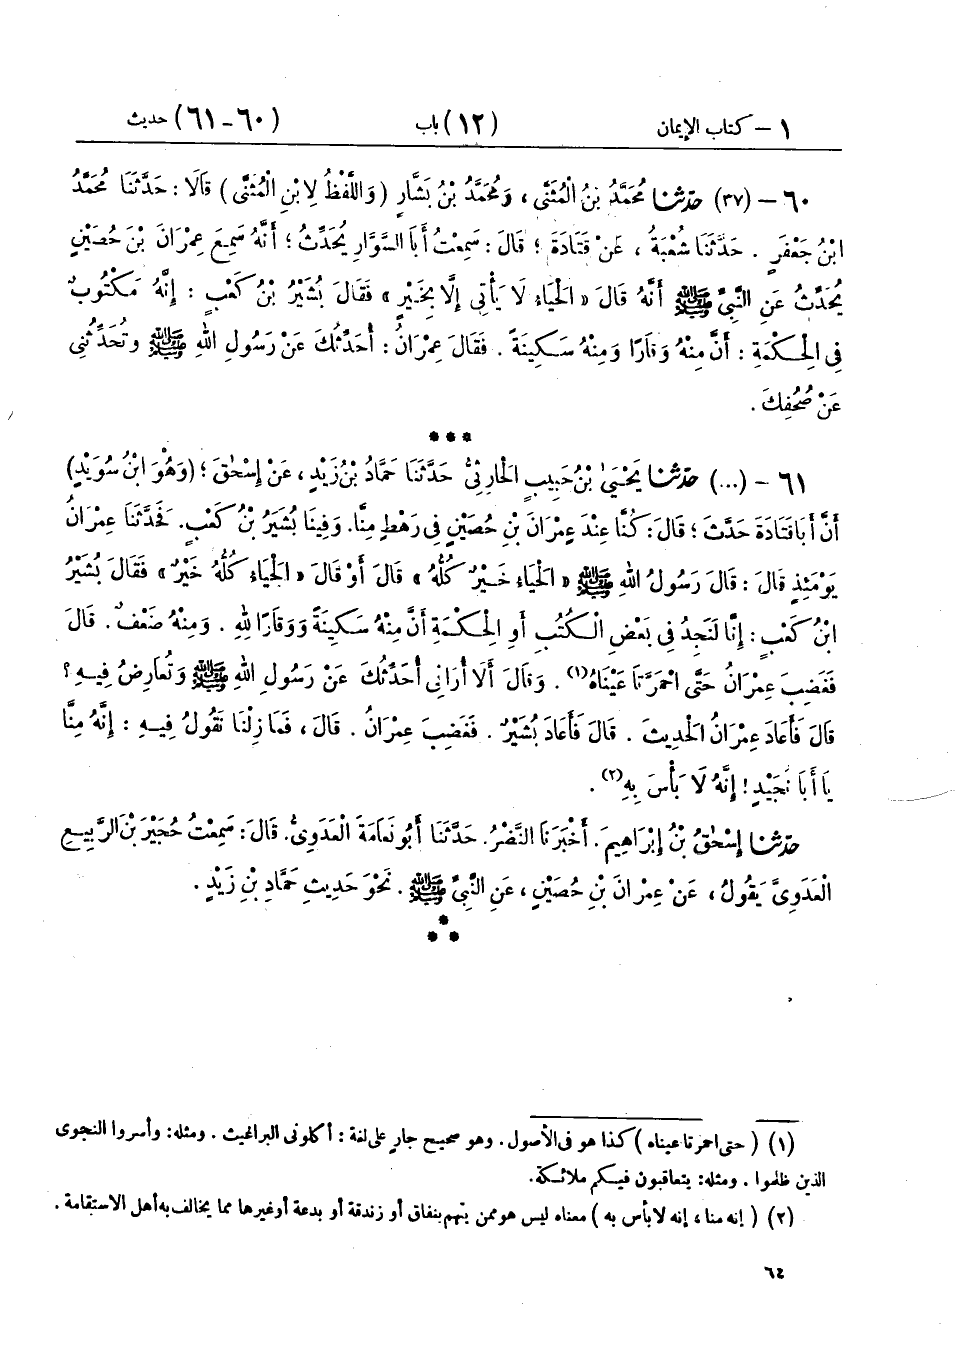 ١ - كتاب الإيمان (١٢) باب (٦٠-٦١) حديث
٦٠ - (٣٧) حدّثنا مُحَمَّدُ بْنُ الْمُثَنَّى، وَمُحَمَّدُ بْنُ بَشَّارٍ (وَاللَّفْظُ لِابْنِ الْمُثَنَّى) قَالَا: حَدَّثَنَا مُحَمَّدُ
ابْنُ جَعْفَرٍ. حَدَّثَنَا شُعْبَةُ، عَنْ قَتَادَةَ؛ قَالَ: سَمِعْتُ أَبَا السَّوَّارِ يُحَدِّثُ؛ أَنَّهُ سَمِعَ عِمْرَانَ بْنَ حُصَيْنٍ
يُحَدِّثُ عَنِ النَّبِيِّ ﷺ أَنَّهُ قَالَ «الْحَيَاءُ لَا يَأْتِى إِلَّا بِخَيْرٍ» فَقَالَ بُشَيْرُ بْنُ كَعْبٍ: إِنَّهُ مَكْتُوبٌ
فِى الْحِكْمَةِ: أَنَّ مِنْهُ وَقَارًا وَمِنْهُ سَكِينَةً. فَقَالَ عِمْرَانُ: أُحَدِّثُكَ عَنْ رَسُولِ اللهِ ﷺ وتُحَدِّثُنِى
عَنْ صُحُفِكَ.
***
٦١ - (...) حدّثنا يَحْيَىٰ بْنُ حَبِيبٍ الْحَارِثِىُّ حَدَّثَنَا حَمَّادُ بْنُ زَيْدٍ، عَنْ إِسْحٰقَ؛ (وَهُوَ ابْنُ سُوَيْدٍ)
أَنَّ أَبَا قَتَادَةَ حَدَّثَ؛ قَالَ: كُنَّا عِنْدَ عِمْرَانَ بْنِ حُصَيْنٍ فِى رَهْطٍ مِنَّا. وَفِينَا بُشَيْرُ بْنُ كَعْبٍ. فَحَدَّثَنَا عِمْرَانُ
يَوْمَئِذٍ قَالَ: قَالَ رَسُولُ اللهِ ﷺ «الْحَيَاءُ خَيْرٌ كُلُّهُ» قَالَ أَوْ قَالَ «الْحَيَاءُ كُلُّهُ خَيْرٌ» فَقَالَ بُشَيْرُ
ابْنُ كَعْبٍ: إِنَّا لَنَجِدُ فِى بَعْضِ الْكُتُبِ أَوِ الْحِكْمَةِ أَنَّ مِنْهُ سَكِينَةً وَوَقَارًا لِلهِ. وَمِنْهُ ضَعْفٌ. قَالَ
فَغَضِبَ عِمْرَانُ حَتَّى احْمَرَّتَا عَيْنَاهُ(١). وَقَالَ أَلَا أُرَانِى أُحَدِّثُكَ عَنْ رَسُولِ اللهِ ﷺ وَتُعَارِضُ فِيهِ؟
قَالَ فَأَعَادَ عِمْرَانُ الْحَدِيثَ. قَالَ فَأَعَادَ بُشَيْرٌ. فَغَضِبَ عِمْرَانُ. قَالَ، فَمَا زِلْنَا نَقُولُ فِيهِ: إِنَّهُ مِنَّا
يَا أَبَا نُجَيْدٍ! إِنَّهُ لَا بَأْسَ بِهِ(٢).
حدّثنا إِسْحٰقُ بْنُ إِبْرَاهِيمَ. أَخْبَرَنَا النَّضْرُ. حَدَّثَنَا أَبُو نَعَامَةَ الْعَدَوِىُّ. قَالَ: سَمِعْتُ حُجَيْرَ بْنَ الرَّبِيعِ
الْعَدَوِىَّ يَقُولُ، عَنْ عِمْرَانَ بْنِ حُصَيْنٍ، عَنِ النَّبِىِّ ﷺ. نَحْوَ حَدِيثِ حَمَّادِ بْنِ زَيْدٍ.
*
* *
(١) (حتى احمرتا عيناه) كذا هو فى الأصول. وهو صحيح جارٍ على لغة: أكلونى البراغيث. ومثله: وأسروا النجوى
الذين ظلموا. ومثله: يتعاقبون فيكم ملائكة.
(٢) (إنه منا، إنه لا بأس به) معناه ليس هو ممن يتهم بنفاق أو زندقة أو بدعة أو غيرها مما يخالف به أهل الاستقامة.
٦٤